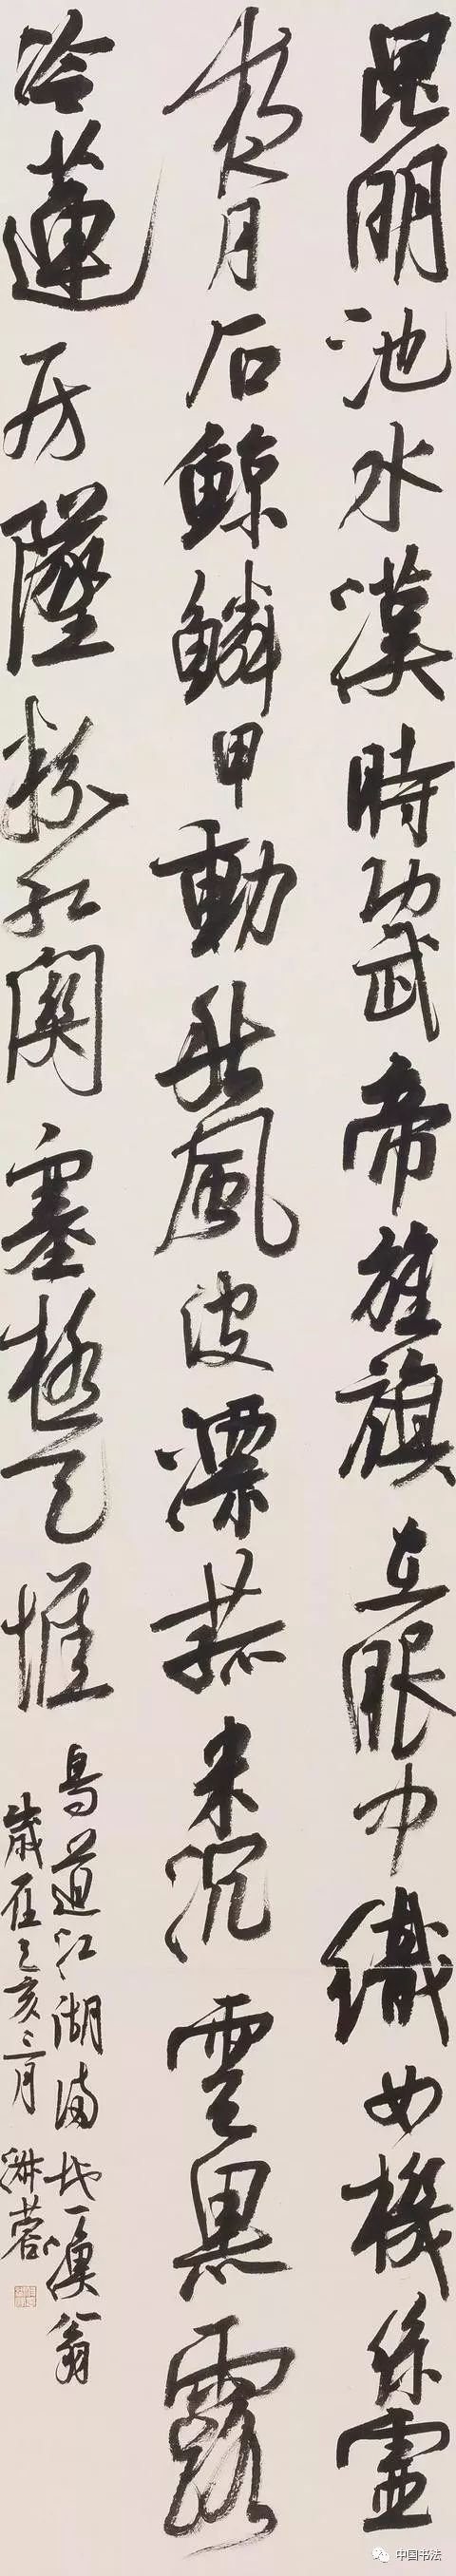 昆明池水漢時功武帝旌旗在眼中織女機絲虛
夜月石鯨鱗甲動秋風波漂菰米沉雲黑露
冷蓮房墜粉紅關塞極天惟
鳥道江湖滿地一漁翁
歲在乙亥三月
中国书法